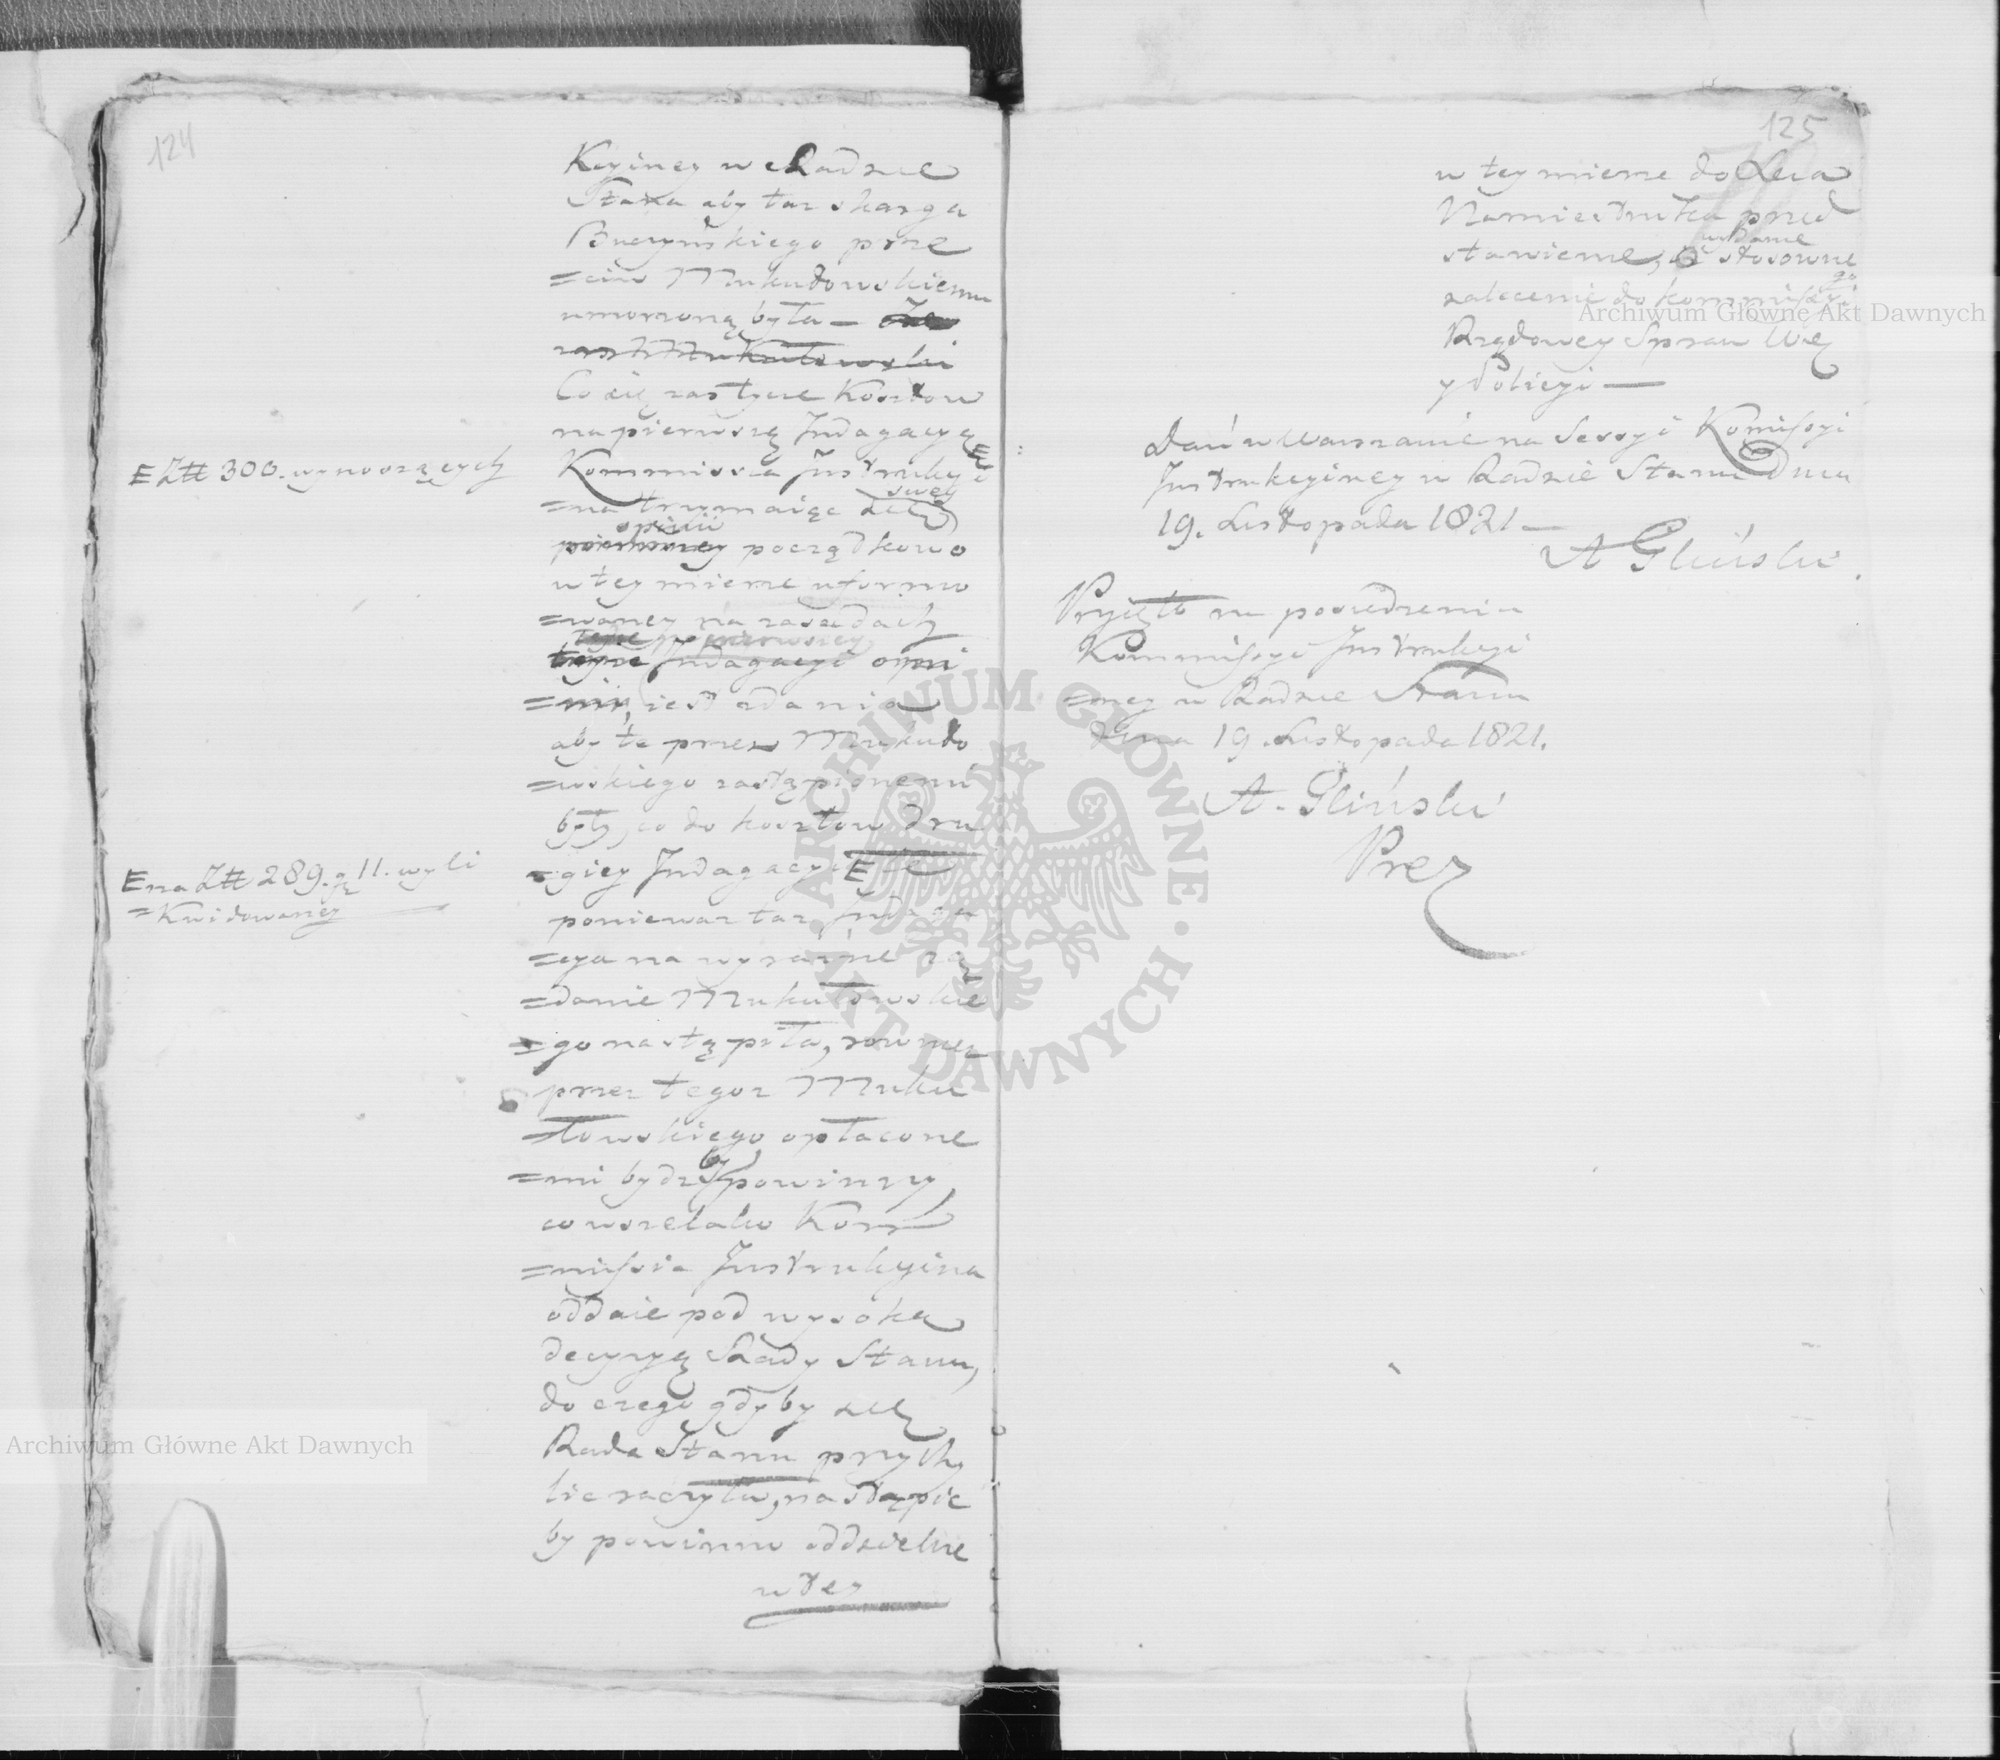 124
Kcyiney w Radzie
Stanu aby taż skarga
Buczyńskiego prze
=ciw Mukułowskiemu
umorzoną była —
Co się zas tycze Kosztow
na pierwszą Jndagacyę E
E Z# 300. wynoszących
Kommissia Jnstrukcyi
=na trzymaiąc się swey
opinii początkowo
w tey mierze uformo
=waney na zasadach
pierwszey
Jndagacyi opini
=nii, iest zdania
aby te przez Mukuło
=wskiego zastąpionemi
były, co do kosztow dru
=giey Jndagacyi E
E na Z# 289. gr 11. wyli
=kwidowaney
ponieważ taż Jndaga
=cya na wyraźne żą
=danie Mukułowskie
=go nastąpiła, rownież
przez tegoż Muku
=łowskiego opłacone
=mi bydź by powinny
co wszelako Kom
=missia Jnstrukcyina
oddaie pod wysoką
decyzyą Rady Stanu,
do czego gdyby się
Rada Stanu przychy
lić raczyła, nastąpić
by powinno oddzielne
w tey
125
w tey mierze do Xcia
Namiestnika przed
stawienie, o wydanie stosowne
go
zalecenie do Kommissyi
Rządowey Spraw Wew
y Policyi —
Dań w Warszawie na Sessyi Komissyi
Jnstrukcyiney w Radzie Stanu dnia
19. Listopada 1821 —
A Gliński.
Przyięto na posiedzeniu
Kommissyi Jnstrukcyi
=ney w Radzie Stanu
Dnia 19. Listopada 1821.
A. Gliński
Prez
Archiwum Główne Akt Dawnych
Archiwum Główne Akt Dawnych
ARCHIWUM GŁÓWNE · AKT DAWNYCH ·